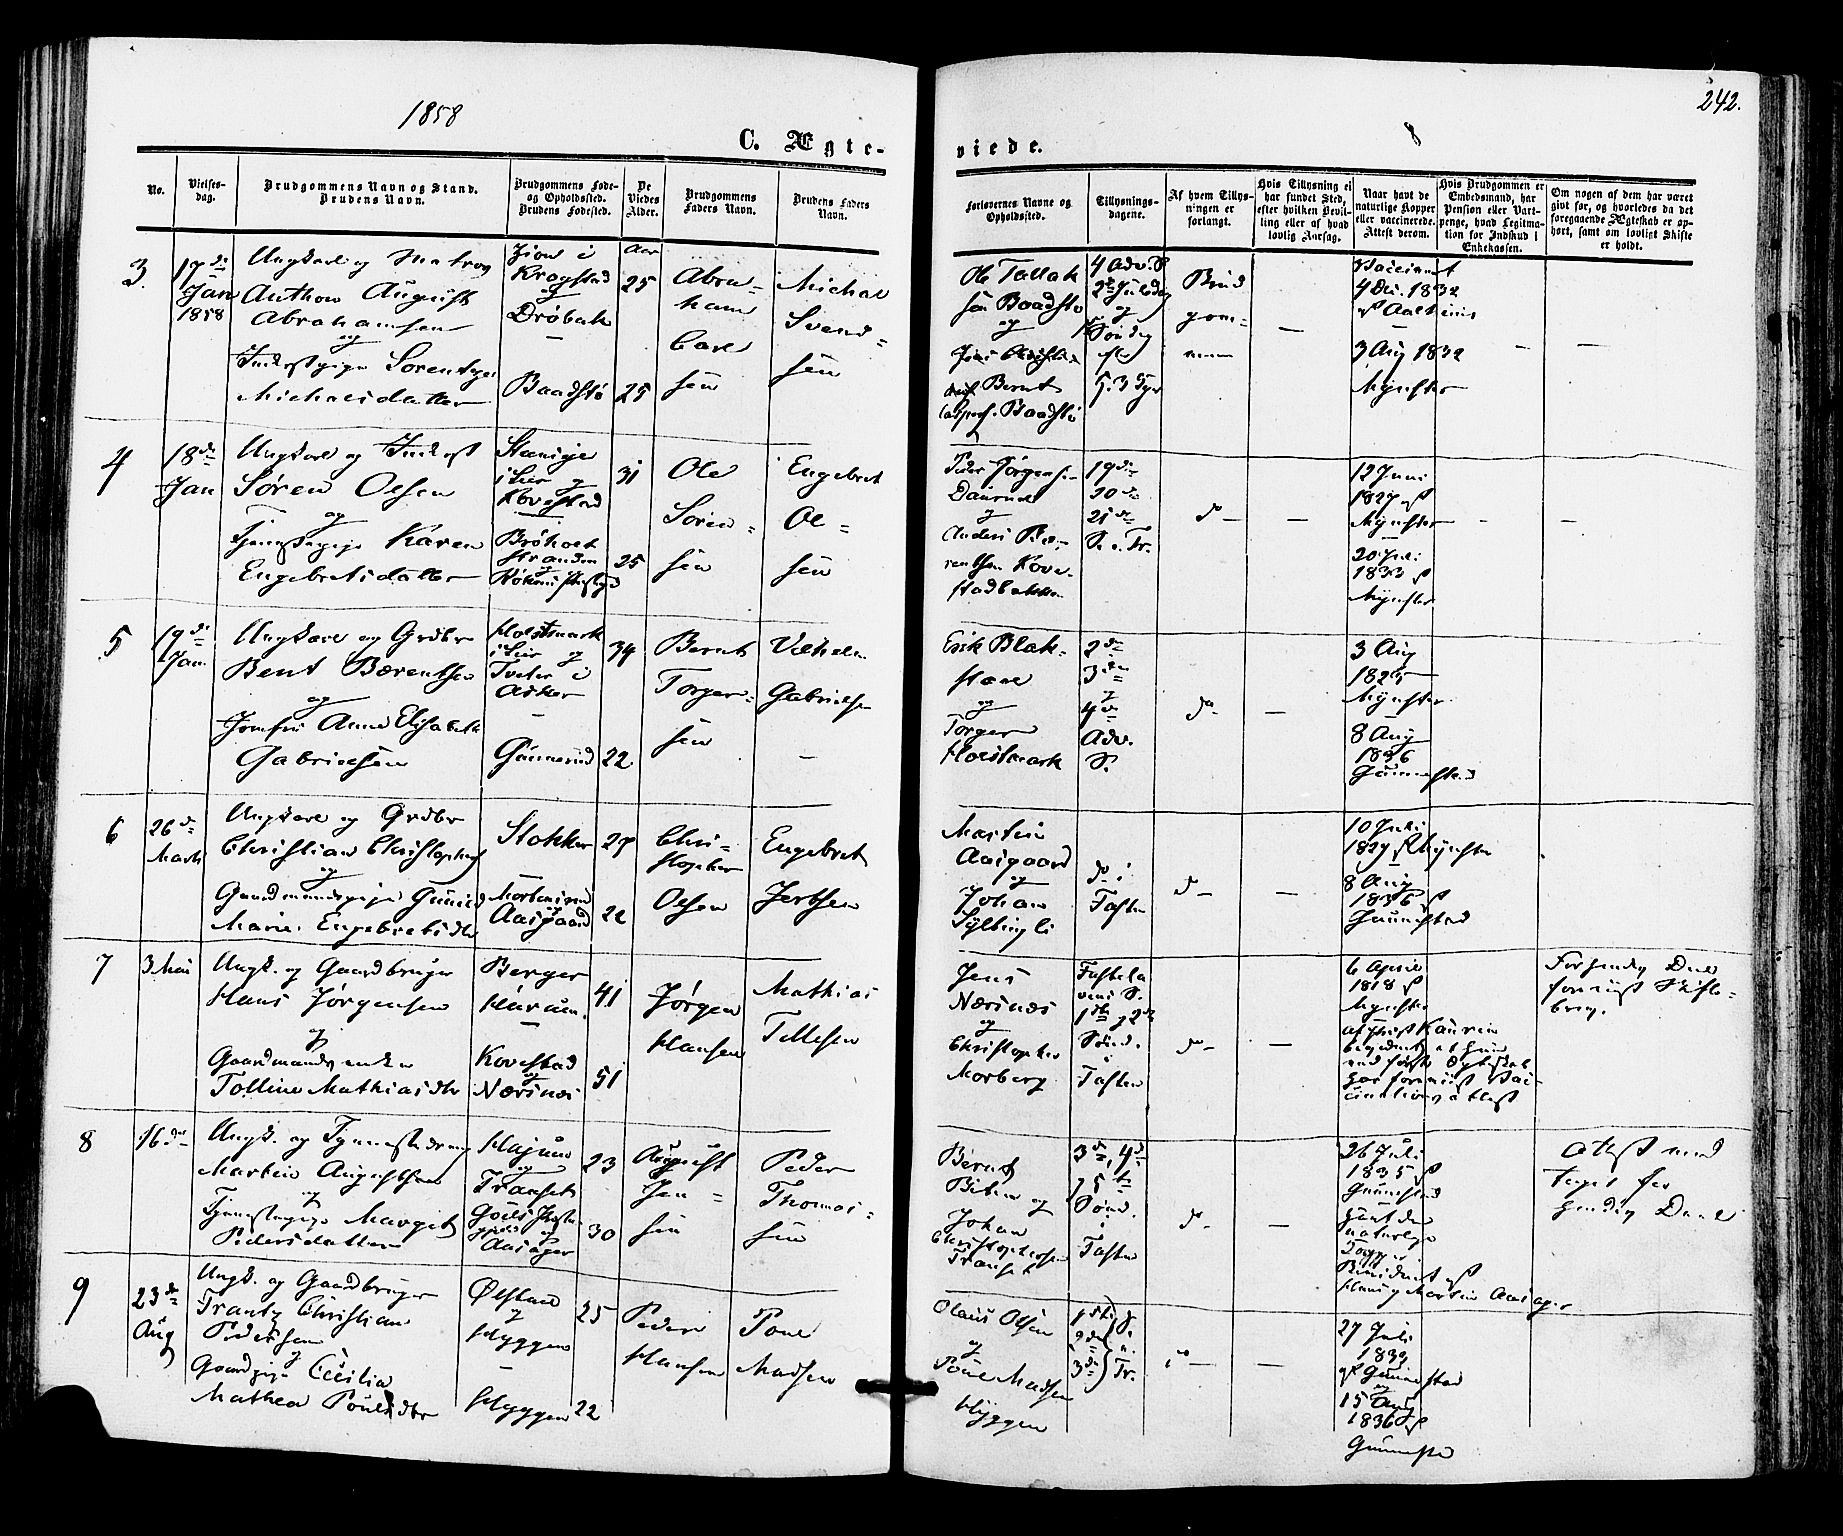 1858
242.
C. Ægte-
viede.
No.
Vielses-
dag.
Brudgommens Navn og Stand.
Brudens Navn.
Brudgommens Føde-
og Opholdssted.
Brudens Fødested.
De
Viedes
Alder.
Brudgommens
Faders Navn.
Brudens Faders
Navn.
Forlovernes Navne og
Opholdssted.
Tillysnings-
dagene.
Af hvem Tillys-
ningen er
forlangt.
Hvis Tillysning ei
har fundet Sted,
efter hvilken Bevil-
ling eller af hvad
lovlig Aarsag.
Naar havt de
naturlige Kopper
eller vaccinerede.
Attest derom.
Hvis Brudgommen er
Embedsmand, har
Pension eller Vart-
penge, hvad Legitma-
tion for Indskud i
Enkekassen.
Om nogen af dem har været
givt før, og hvorledes da det
foregaaende Ægteskab er op-
hørt, samt om lovligt Skifte
er holdt.
3.
17de
Jan
1858
Ungkarl og Matros
Anthon August
Abrahamsen
og
Michaelsdatter
Krogstad
og
Drøbak
–
Baadstø
Aar
25
25
Abra-
ham
Carl
sen
Michael
Svend-
sen
Ole Tallak
sen Baadstø
og
Bernt
Baadstø
4 Adv. S
2 Juledag
og
Søndag
Brud
gom-
men
–
Vaccineret
4 Dec. 1832
3 Aug 1832
Mynster
–
–
4
18de
Jan
Ungkarl og Inderst
Søren Olsen
og
Tjenestepige Karen
Engebretsdatter
i Lier og
Kovestad
–
Brøholt
stranden
og
31
25
Ole
Søren-
sen
Engebret
Ol-
sen
Peder Jørgensen
Daurud
og
Anders Bæ-
rentsen Kove-
stadbakken
19de
20de
21de
S. e. Tr.
do –
–
12 Juni
1827 af
Mynster
–
20 Juli
1833 af
Mynster
–
–
5
19de
Jan.
Ungkarl og Grdbr
Bent Bærentsen
og
Jomfru Anne Elisabeth
Gabrielsen
Holstmark
i Lier og
Tveter i
Asker
–
Gunnerud
34
22
Bernt
Torger-
sen
Vilhelm
Gabrielsen
–
Erik Blak-
stad
og
Torger
Holstmark
2de
3die
og
4de
Adv.
S.
do
–
3 Aug
1825
Mynster
8 Aug
1836
Gunnestad
6
26de
Marts
Ungkarl og Grdbr
Christian Christophers
og
Gaardmandspige Gunild
Marie Engebretsdtr
Stokker
–
Mortensrud
Aasgaard
27
22
Chri-
stopher
Olsen
Engebret
Jertsen
Martin
Aasgaard
og
Johan
Syltingli
do i
Fasten
do –
–
10 Juli
1829 af Mynster
–
8 Aug
1836 af
Gunnestad
7
3 Mai
Ungk. og Gaardbruger
Hans Jørgensen
og
Gaardmandsenke
Tolline Mathiasdtr
Berger
Hurum.
–
Kovestad
og
Nærsnes
41
51
Jørgen
Hansen
Mathias
Tellefsen
Jens
Nærsnes
og
Christopher
Morberg
Fastela
vens S.
1ste og 2de
Sønd.
i
Fasten
do –
–
6 April
1818 af
Mynster
8
16de
Ungk. og Tjenestedreng
Martin Augustsen
og
Tjenestepige Margit
Pedersdatter
og
Transet
Aasager
23
30
August
Jen-
sen
Peder
Thomas-
sen
Bernt
og
Johan
Christophersen
Transet
3de, 4de
og 5te
Sønd.
i
Fasten
do –
–
26 Juli
1835 af
Gunnestad
Martin Aasager
9
23de
Aug
Ungk. og Gaardbruger
Frantz Christian
Pedersen
og
Gaardpige Cecilia
Mathea Poulsdtr
Ølstad
og
Hyggen
–
Hyggen
25
22
Peder
Hansen
Poul
Madsen
Olaus Olsen
og
Poul Madsen
Hyggen
1ste
2de
3de
S.
e.
Tr.
do –
–
27 Juli
1833
af Gunnestad
og
15 Aug
1836 af
Gunnestad